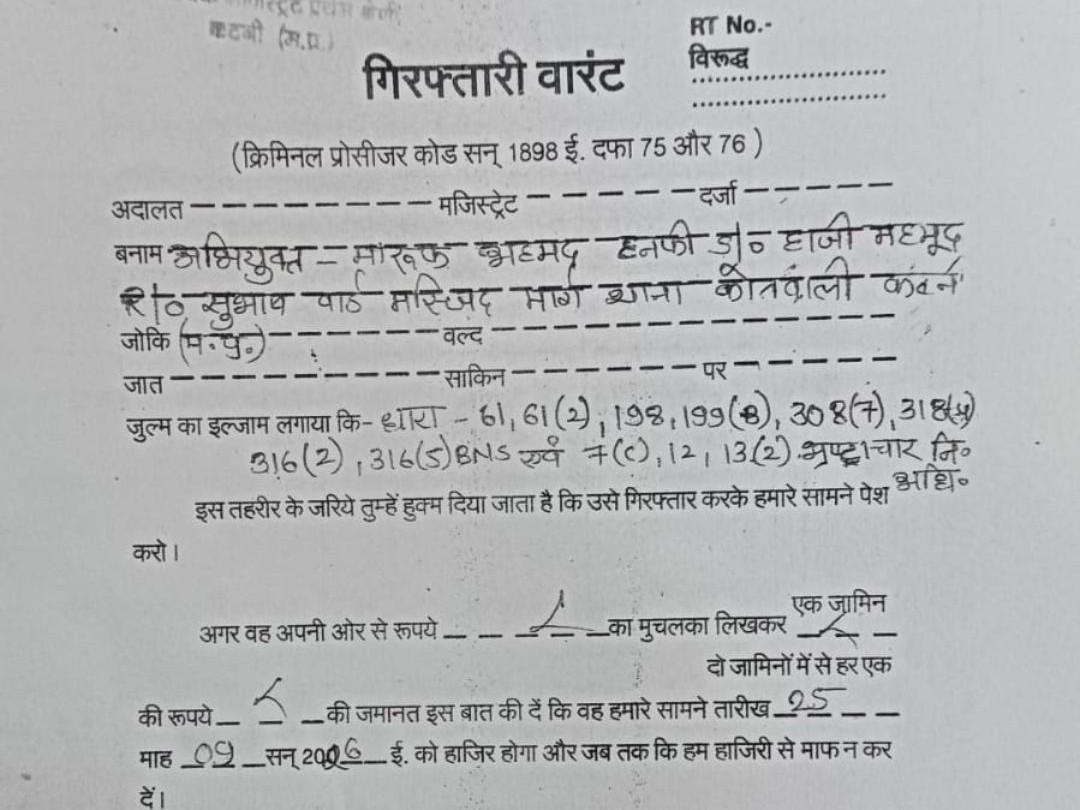 प्रथम श्रेणी
कटनी (म.प्र.)
RT No.-
विरूद्ध
गिरफ्तारी वारंट
(क्रिमिनल प्रोसीजर कोड सन् 1898 ई. दफा 75 और 76 )
अदालत मजिस्ट्रेट दर्जा
बनाम अभियुक्त - मारूफ अहमद हनफी S/० हाजी महमूद
R/० सुभाष वार्ड मस्जिद मार्ग थाना कोतवाली
जोकि (म.प्र.) वल्द
जात साकिन पर
जुल्म का इल्जाम लगाया कि- धारा - 61, 61(2), 198, 199(B), 308(7), 318(4)
316(2), 316(5) BNS एवं 7(C), 12, 13(2) भ्रष्टाचार नि०
अधि०
इस तहरीर के जरिये तुम्हें हुक्म दिया जाता है कि उसे गिरफ्तार करके हमारे सामने पेश
करो।
एक जामिन
अगर वह अपनी ओर से रूपये का मुचलका लिखकर
दो जामिनों में से हर एक
की रूपये की जमानत इस बात की दें कि वह हमारे सामने तारीख 25
माह 09 सन् 2026 ई. को हाजिर होगा और जब तक कि हम हाजिरी से माफ न कर
दें।